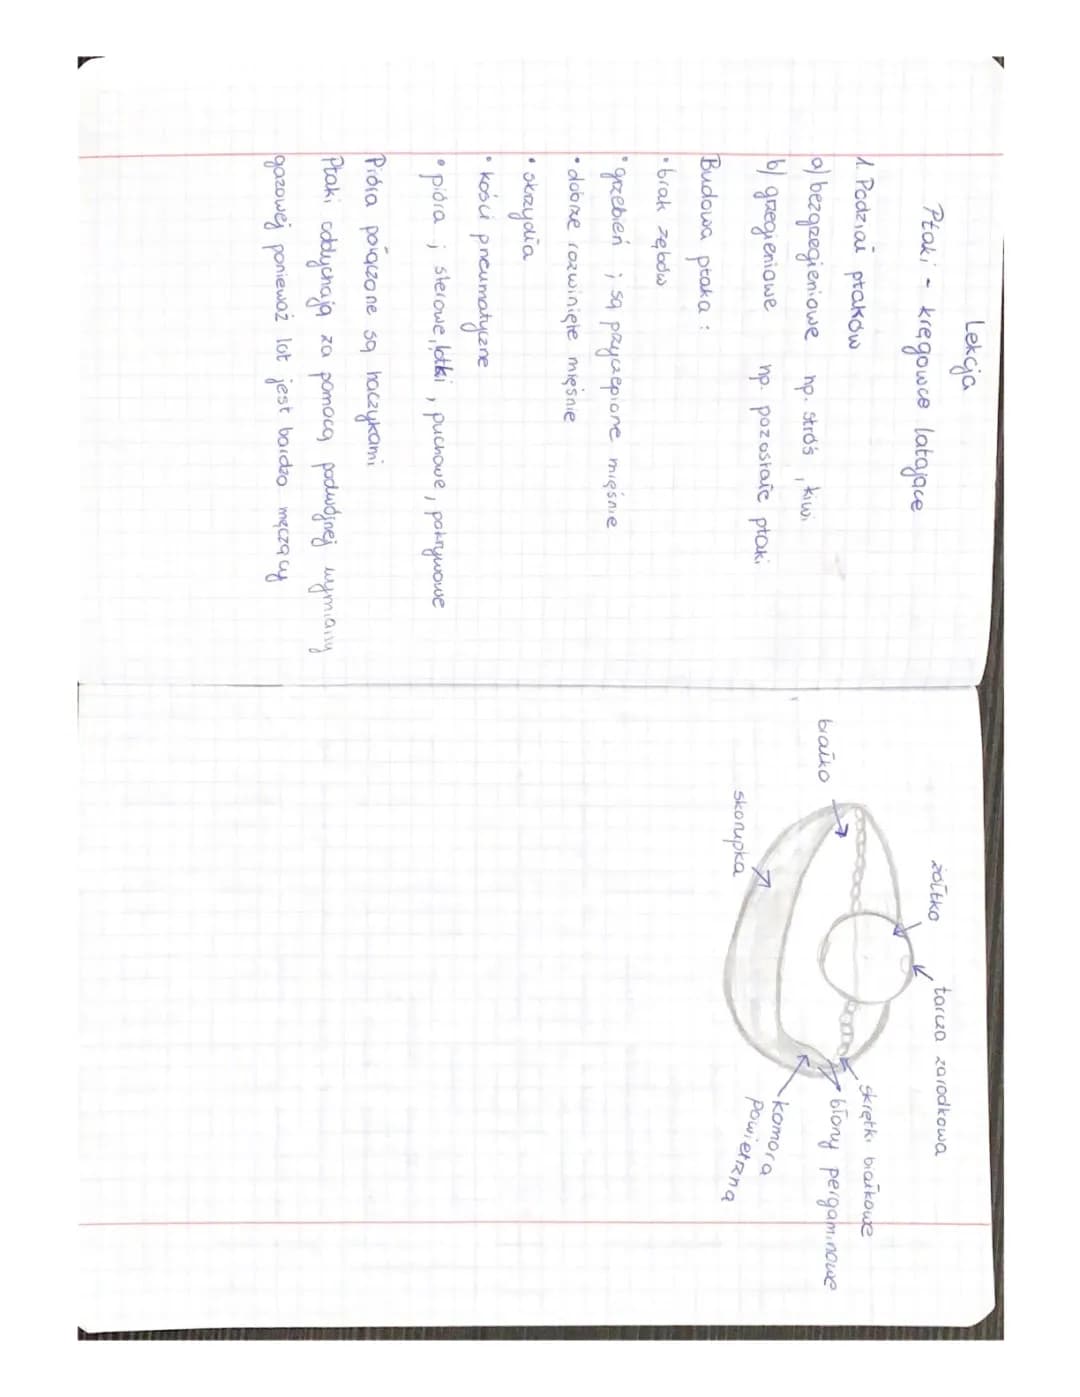 Lekcja
Ptaki - kręgowce latające
1. Podział ptaków
a) bezgrzegieniowe np. stróś, kiwi
b) grzegieniowe np. pozostałe ptaki
Budowa ptaka :
• brak zębów
• grzebień ; są przyczepione mięśnie
• dobrze rozwinięte mięśnie
• skrzydła
• kości pneumatyczne
• pióra ; sterowe, lotki, puchowe, pokrywowe
Pióra połączone są haczykami
Ptaki oddychają za pomocą podwójnej wymiany
gazowej ponieważ lot jest bardzo męczący
żółtko
tarcza zarodkowa
białko
skrętki białkowe
błony pergaminowe
komora
powietrzna
skorupka